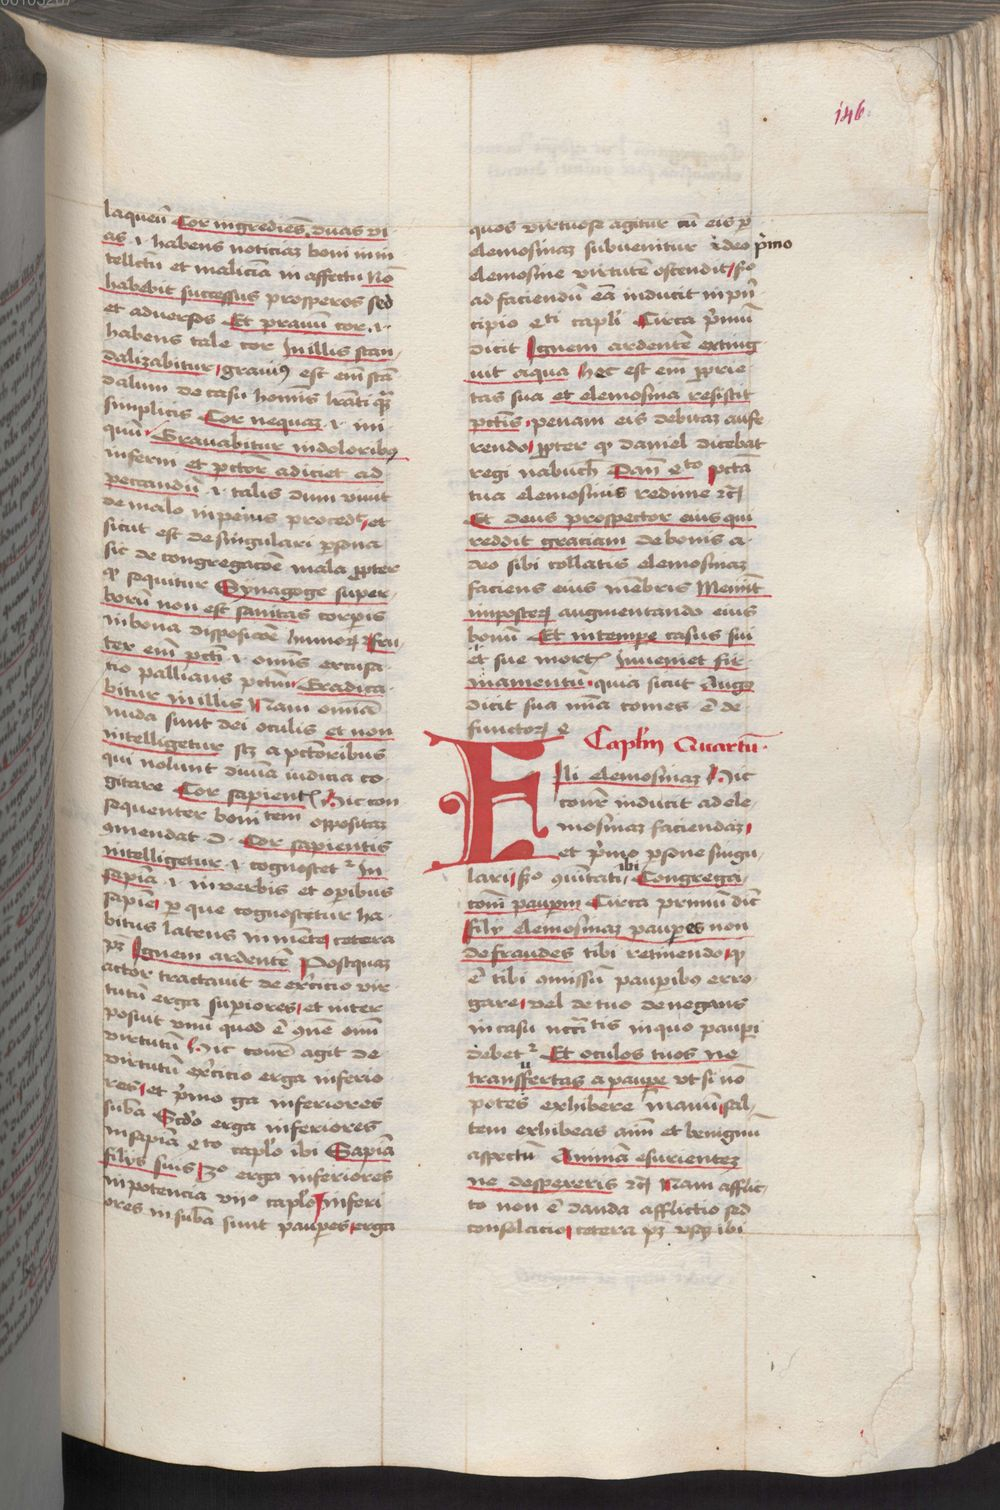 146.
laqueū Cor ingrediēs duas vi
as .i. habens noticiaz boni in in
tellctu et maliciā in affectu Nō
habebit successus prosperos sed
et aduersos Et prauū cor .i.
habens tale cor In illis scan
dalizabitur grauiꝰ est em̄ scā
dalum de casu homīs
simplicis Cor nequaz .i. ini
quū Grauabitur in doloribꝰ
inferni et pctor adiciet ad
peccandū .i. talis dum viuit
de malo in peius procedt et
sicut est de singulari psona
sic de congregacōe mala ppter
qd sequitur Synagoge super
borū non est sanitas corpis
in bona disposicōe humoꝝ fru
tex em̄ pcti .i. omīs excusa
tio pallians pctm Eradica
bitur in illis Nam omnia
nuda sunt dei oculis et non
intelligetur scz a pctoribus
qui nolunt diuina iudicia co
gitare Cor sapientꝭ Hic con
sequenter boni tem oppositaz
ɔmendat d. Cor sapientis
intelligetur .i. cognoscetr In
sapia .i. in verbis et opibus
sapie per que cognoscetur ha
bitus latens in mēte cetera
pꝫ Ignem ardentē Postquaz
actor tractauit de exercicio vir
tutū erga supiores et inter
posuit vnū quod ē ɔmē oīm
virtutū Hic cōnr agit de
virtutū exercicio erga inferio
res et pimo ga inferiores
suba Scdo erga inferiores
in sapia 4to caplo ibi Sapia
filijs suis 3o erga inferiores
in potencia viio caplo inferi
ores in suba sunt paupes erga
quos virtuose agitur cū eis p
elemosinaz subuenitur ideo pimo
elemosine virtutē ostendit so
ad faciendū eā inducit in pn
cipio 4ti capli Circa pimū
dicit Ignem ardentē exting
uit aqua hec est em̄ pprie
tas sua et elemosina resistit
pctis penam eis debitaz aufe
rendo ppter qd daniel dicebat
regi nabuch Dan 4to pcta
tua elemosinis redime ꝛc
Et deus prospector eius qui
reddit graciam de bonis a
deo sibi collatis elemosinaz
faciens eius mēbris Meminit
in posteꝝ augmentando eius
bonū Et in tempe casus sui
et sue mortꝭ Inueniet fir
mamentū quia sicut Augꝰ
dicit sua mīa comes ē de
functoꝝ
Caplm Quartū
Fili elemosinaz Hic
cōnr inducit ad ele
mosinaz faciendaz
et pimo psone singu
lari so ɔmūitati ibi Congrega
cōni paupm Circa primū dic
Fily elemosinaz paupes non
defraudes tibi retinendo qd
ē tibi ɔmissū paupibus erro
gare vel de tuo denegans
in casu nccitatis in quo paupi
debetr Et oculos tuos ne
transuertas a paupe vt si nō
potes exhibere manū sal
tem exhibeas aīm et benignū
aspectū Animā esurientez
ne despexeris ꝛc Nam afflic
to non ē danda afflictio sed
consolcicio cetera pꝫ vsqꝫ ibi